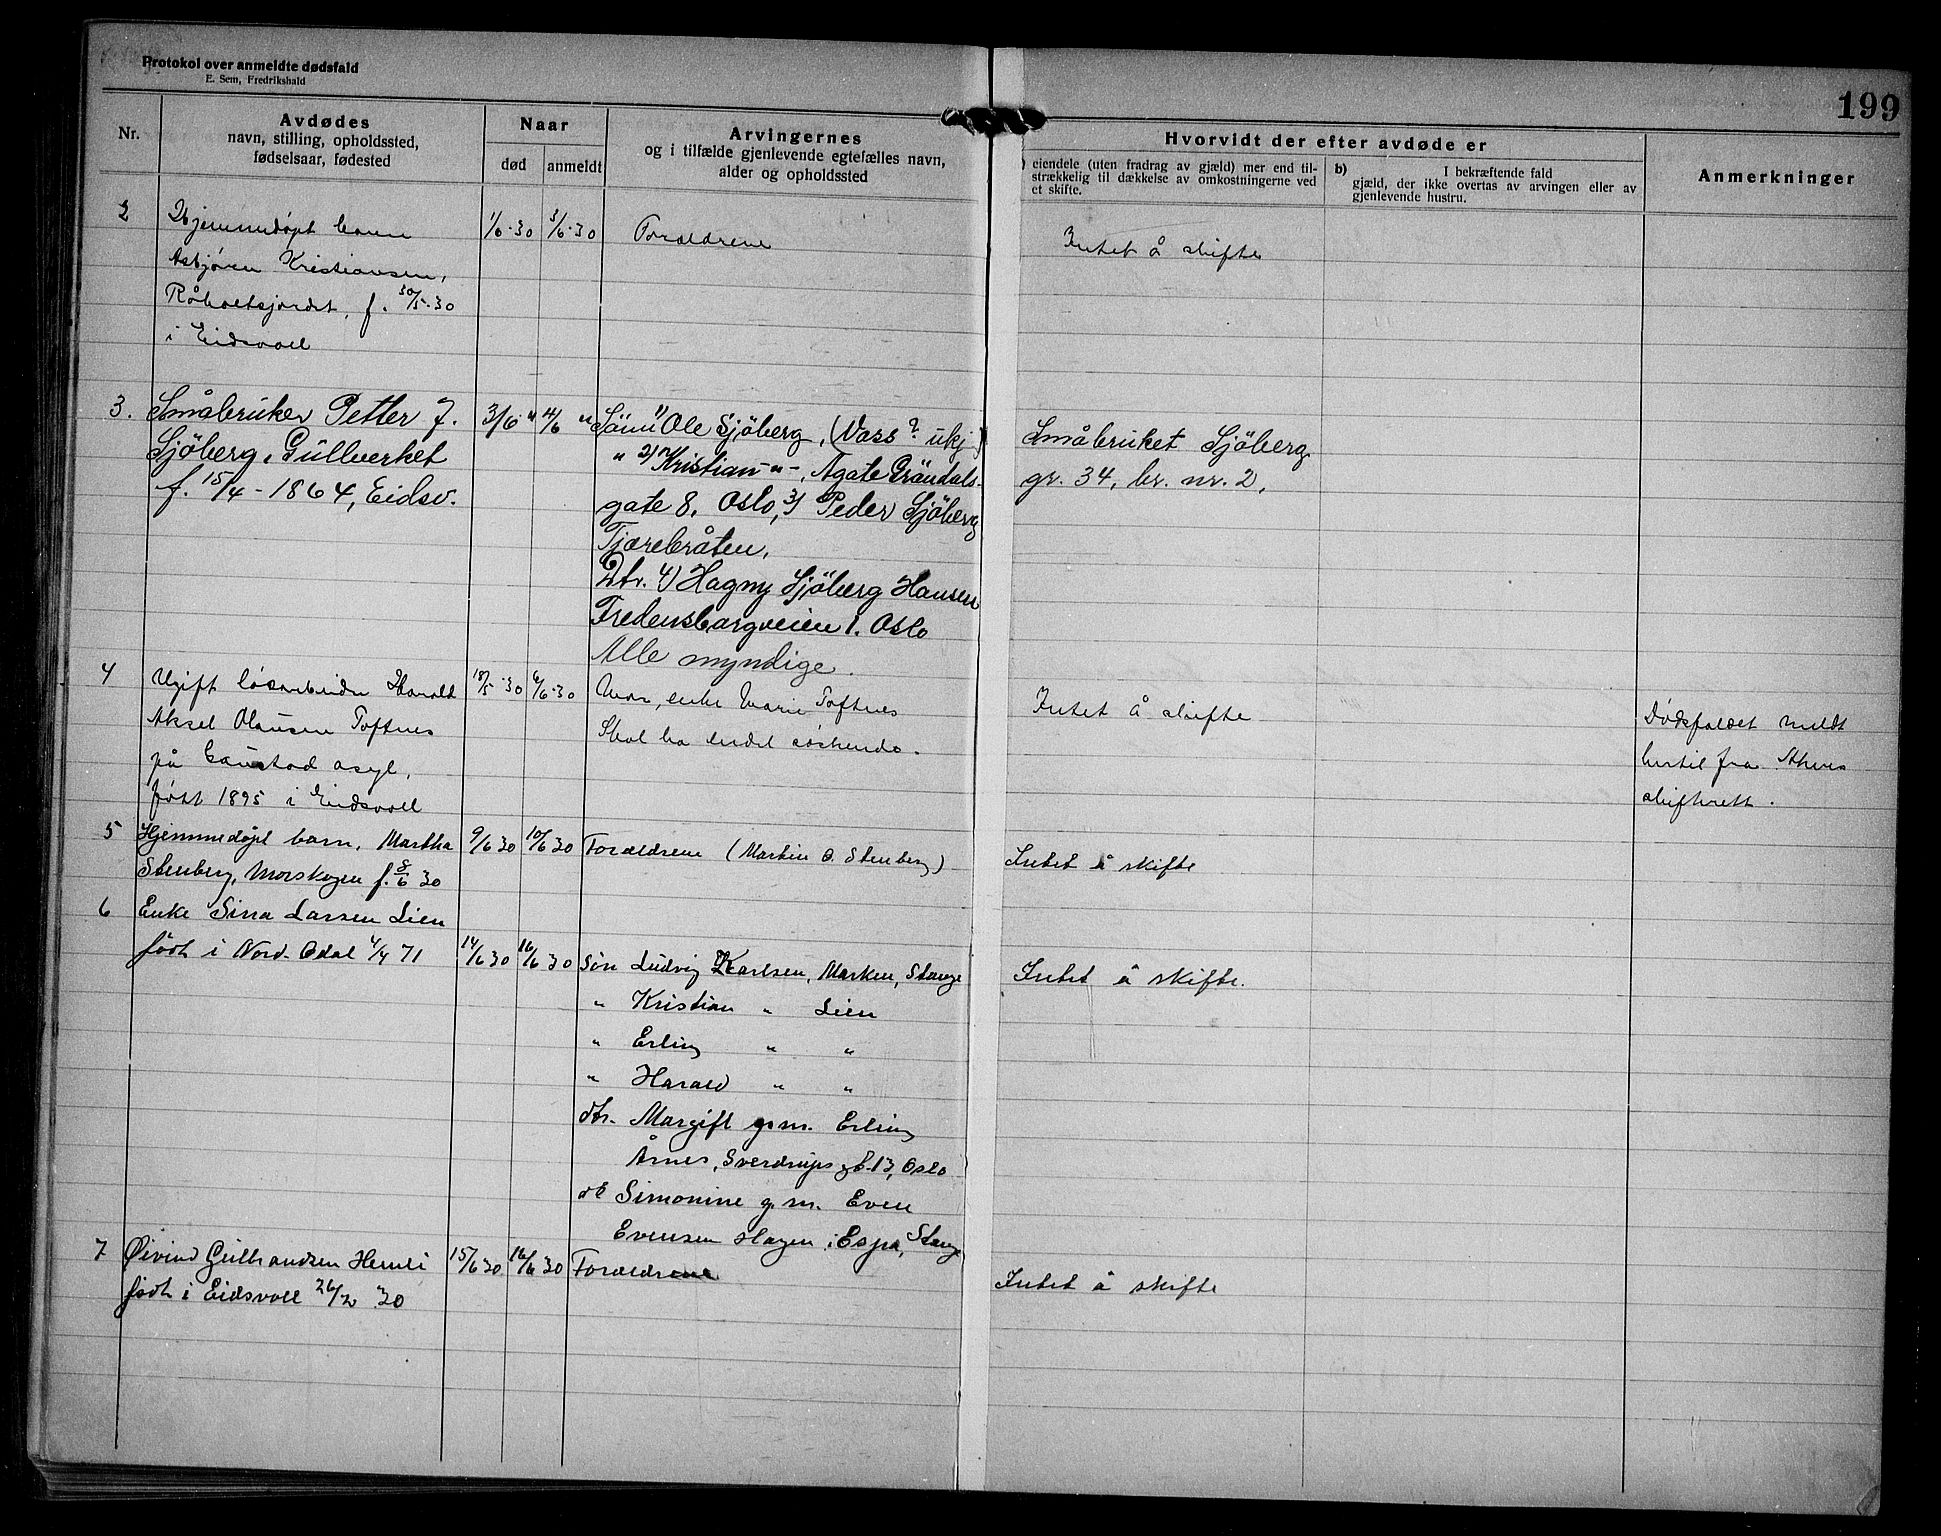 Protokol over anmeldte dødsfald
E. Sem, Fredrikshald
199
Nr.
Avdødes
navn, stilling, opholdssted,
fødselsaar, fødested
Naar
død
anmeldt
Arvingernes
og i tilfælde gjenlevende egtefælles navn,
alder og opholdssted
Hvorvidt der efter avdøde er
) eiendele (uten fradrag av gjæld) mer end til-
strækkelig til dækkelse av omkostningerne ved
et skifte.
b) I bekræftende fald
gjæld, der ikke overtas av arvingen eller av
gjenlevende hustru.
Anmerkninger
2 Hjemmedøpt barn 1/6-30 3/6-30 Forældrene Intet å skifte
Asbjørn Kristiansen,
Råholtsjordet, f. 30/5-30
i Eidsvoll
3. Småbruker Petter J. 3/6 " 4/6 " Sönn 1) Ole Sjöberg, (Voss? ukj.) Småbruket Sjöberg
Sjöberg, Gullverket " 2) Kristian -"-, Agate Gröndals- gr. 34, br. nr. 2,
f. 15/4-1864, Eidsv. gate 8, Oslo, 3) Peder Sjöberg
Tjærebråten,
Dtr. 4) Hagny Sjöberg Hansen
Fredensborgveien 1. Oslo
Alle myndige.
4 Ugift løsarbeider Harald 18/5-30 6/6-30 Mor, enke Marie Toftnes Intet å skifte Dødsfaldet meldt
Aksel Olausen Toftnes Skal ha endel søskende. hertil fra Akers
på Gaustad asyl, skifterett.
født 1895 i Eidsvoll
5 Hjemmedøpt barn, Martha 9/6 30 10/6 30 Forældrene (Martin O. Stenberg) Intet å skifte
Stenberg, Morskogen f. 8/6 30
6 Enke Sina Larsen Lien
født i Nord-Odal 4/4 71 14/6 30 16/6 30 Søn Ludvig Karlsen, Marken, Stange Intet å skifte.
" Kristian " Lien
" Erling " "
" Harald " "
dtr. Margit g.m. Erling
Årnes, Sverdrups gt. 13, Oslo
dt Simonine g.m. Even
Evensen Hagen i Espa, Stange
7 Øivind Gulbrandsen Hemli 15/6 30 16/6 30 Forældrene Intet å skifte
født i Eidsvoll 26/2 30